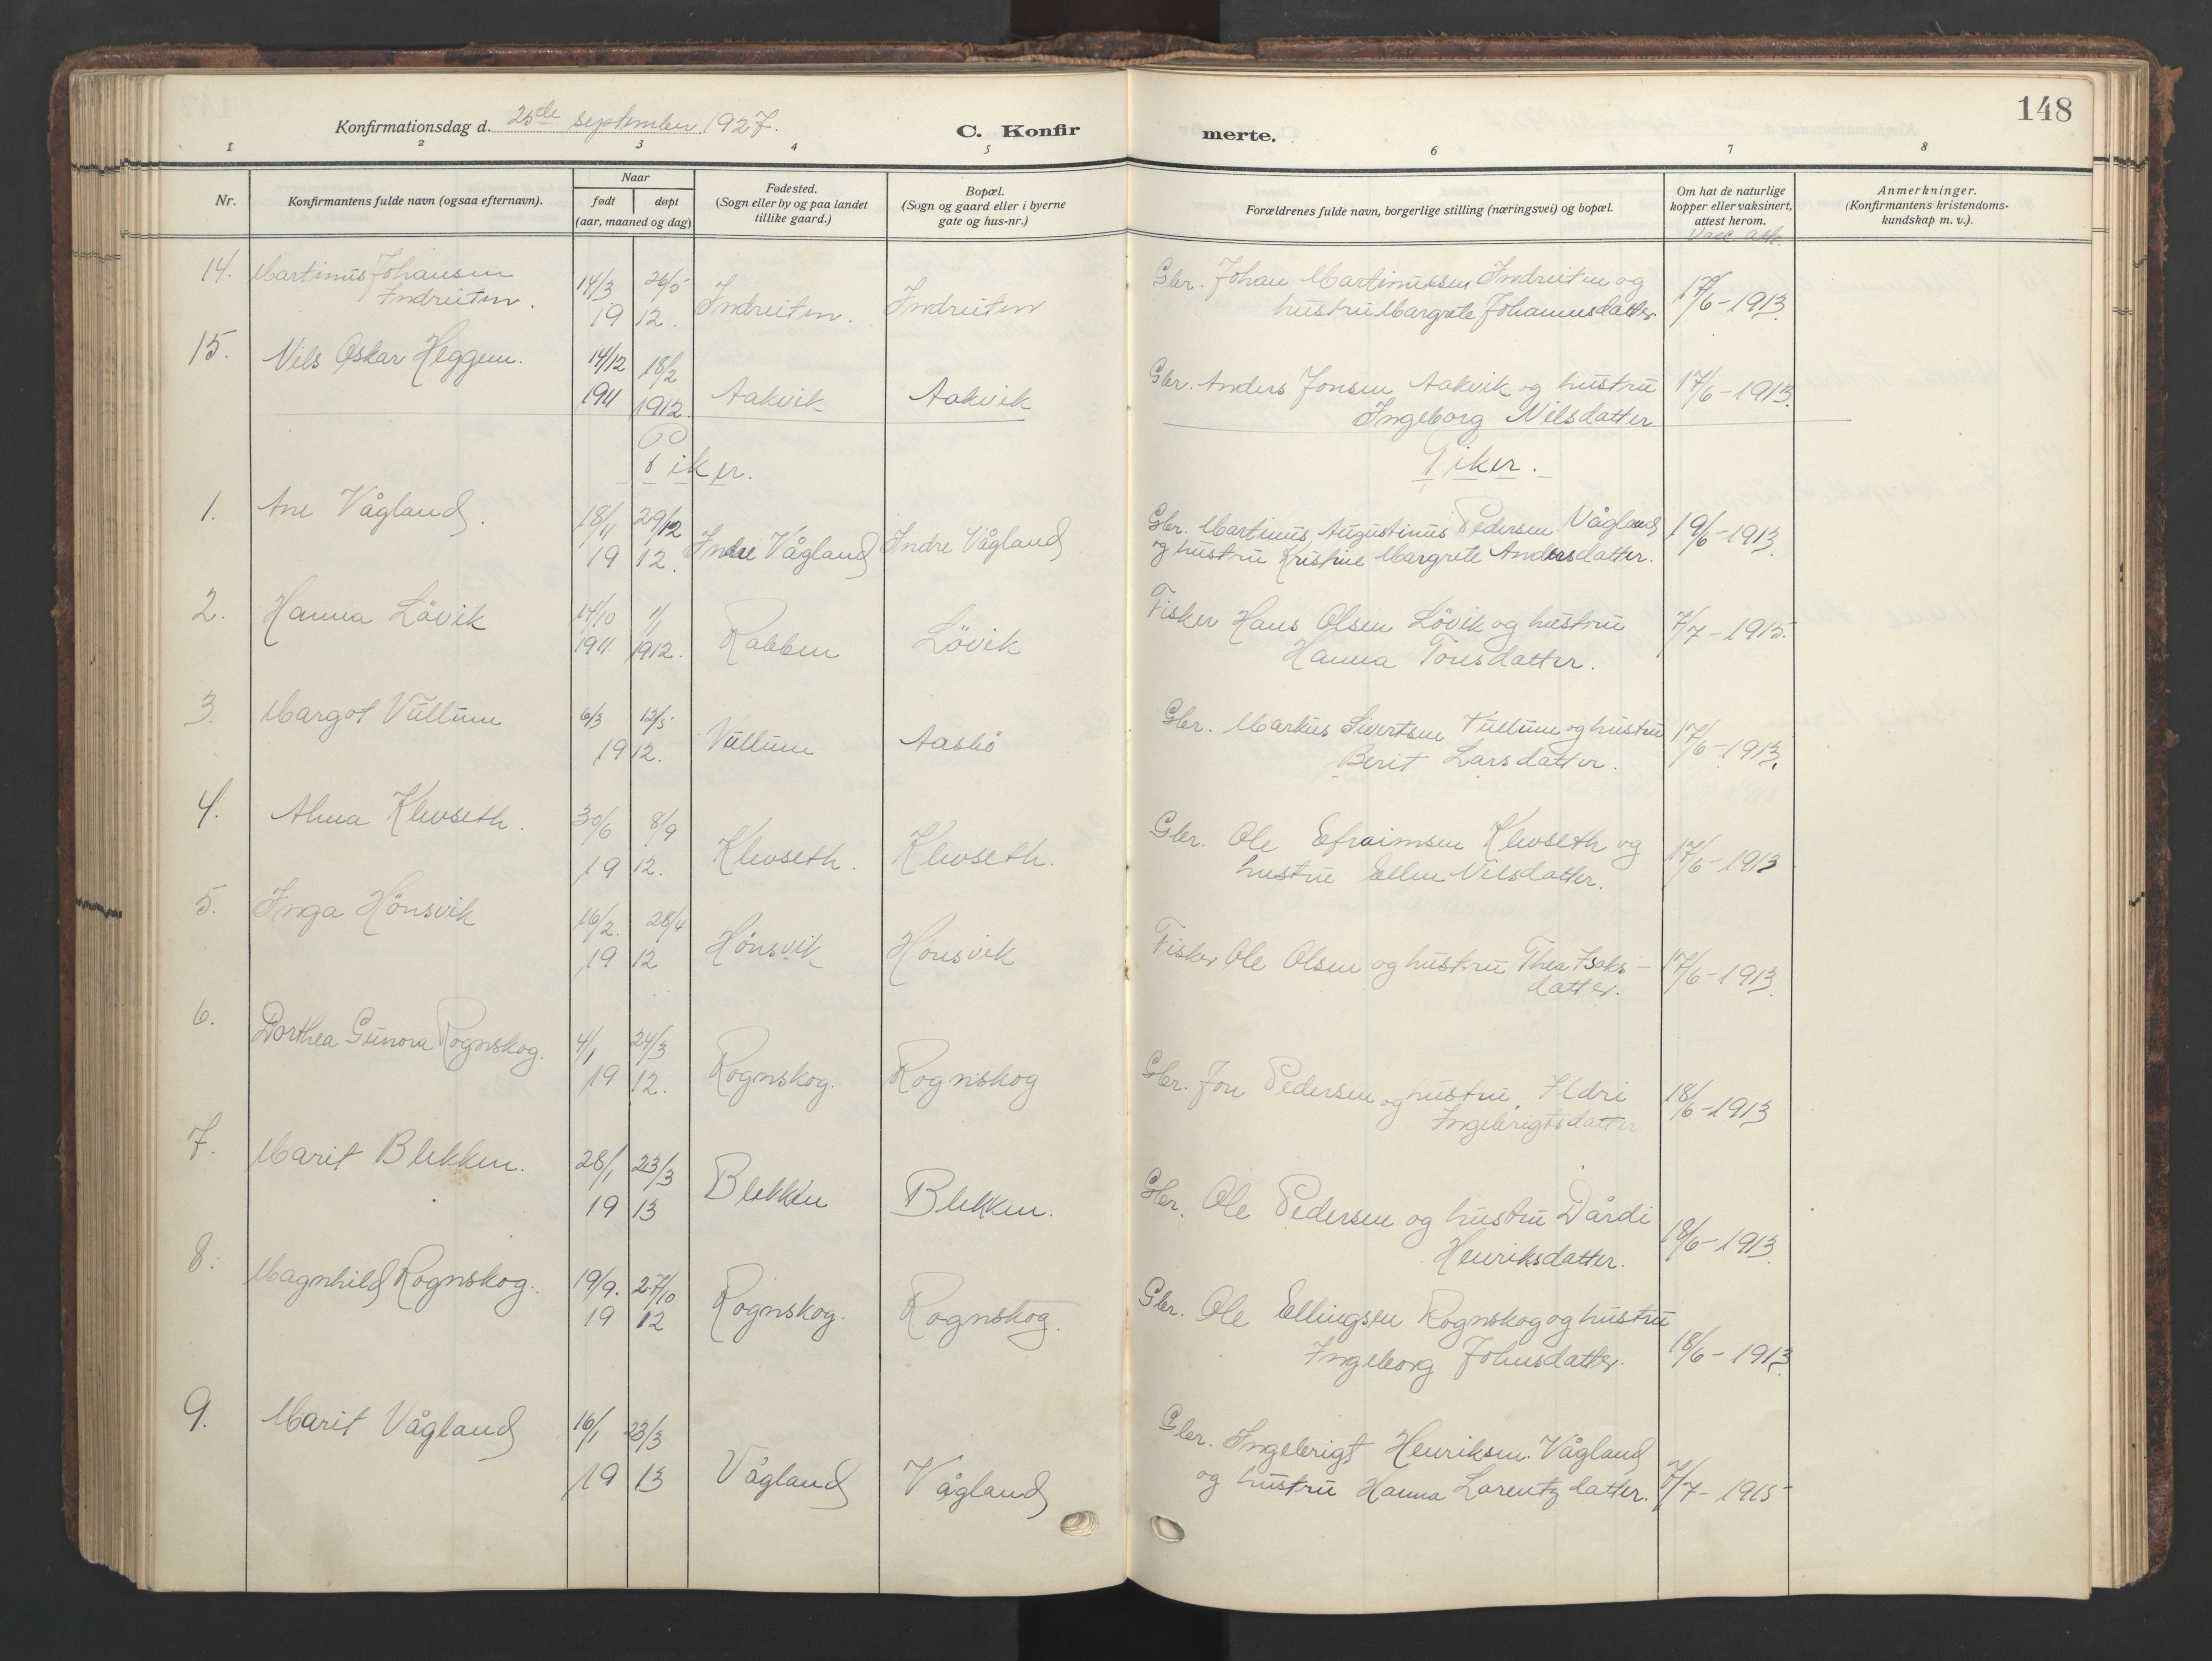 148
Konfirmationsdag d. 25de september 1927.
C. Konfirmerte.
1 2 3 4 5 6 7 8
Nr.
Konfirmantens fulde navn (ogsaa efternavn).
Naar
født døpt
(aar, maaned og dag)
Fødested.
(Sogn eller by og paa landet
tillike gaard.)
Bopæl.
(Sogn og gaard eller i byerne
gate og hus-nr.)
Forældrenes fulde navn, borgerlige stilling (næringsvei) og bopæl.
Om hat de naturlige
kopper eller vaksinert,
attest herom.
Anmerkninger.
(Konfirmantens kristendoms-
kundskap m. v.).
Vacc att.
14. Martinus Johansen 14/3 26/5 Gbr. Johan Martinussen Indreitm og 17/6-1913
Indreitm. 19 12. Indreitm. Indreitm hustru Margrete Johannesdatter
15. Nils Oskar Heggem. 14/12 18/2 Gbr. Anders Jonsen Aakvik og hustru 17/6-1913.
1911 1912. Aakvik Aakvik Ingeborg Nilsdatter
Piker. Piker.
1. Ane Vågland. 18/11 29/12 Gbr. Martinus Augustinus Pedersen Vågland 19/6-1913
19 12. Indre Vågland Indre Vågland og hustru Kristine Margrete Andersdatter.
2. Hanna Lövik 14/10 1/1 Fisker Hans Olsen Lövik og hustru 7/7-1915.
1911 1912. Rabben Lövik Hanna Tonsdatter.
3. Margot Vullum 6/3 12/5 Gbr. Markus Sivertsen Vullum og hustru 17/6-1913.
1912. Vullum Aasbö Berit Larsdatter.
4. Alma Klevseth. 30/6 8/9 Gbr. Ole Efraimsen Klevseth og 17/6-1913
19 12. Klevseth. Klevseth. hustru Ellen Nilsdatter.
5. Inga Hönsvik 16/2. 28/4 Fisker Ole Olsen og hustru Thea Isaks- 17/6-1913
19 12 Hönsvik Hönsvik datter.
6. Dorthea Gunora Rognskog. 4/1 24/3 Gbr. Jon Pedersen og hustru Ildri 18/6-1913
19 12. Rognskog. Rognskog Ingebrigtsdatter
7. Marit Blekken. 28/1 23/3 Gbr. Ole Pedersen og hustru Dårdi 18/6-1913
19 13 Blekken Blekken. Henriksdatter.
8. Magnhild Rognskog. 19/9. 27/10 Gbr. Ole Ellingsen Rognskog og hustru 18/6-1913
19 12 Rognskog. Rognskog. Ingeborg Johnsdatter.
9. Marit Vågland 16/1 23/3 Gbr. Ingebrigt Henriksen Vågland
19 13 Vågland Vågland og hustru Hanna Lorentzdatter. 7/7-1915